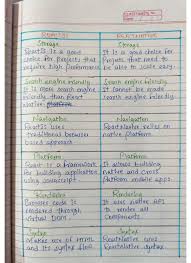 ReactJS
Storage
ReactJS is a good
choice for projects that
require high performance
Search engine friendly
It is more search engine
friendly than React
Native platform
Navigation
ReactJS uses
traditional browser
based approach
Platform
ReactJS is a framework
for building application
using javascript.
Rendering
Browser code is
rendered through
virtual DOM
Syntax
Makes use of HTML
and its syntax flow.
Storage
It is a good choice for
Project that need to
be able to scale easy.
Search engine friendly
It cannot be made
search engine friendly
Navigation
React Native relies on
native platform
Platform
It allows building
native and cross
platform mobile apps.
Rendering
It uses native API
to render all
Components.
Syntax
React Native uses
React Native
Syntax.